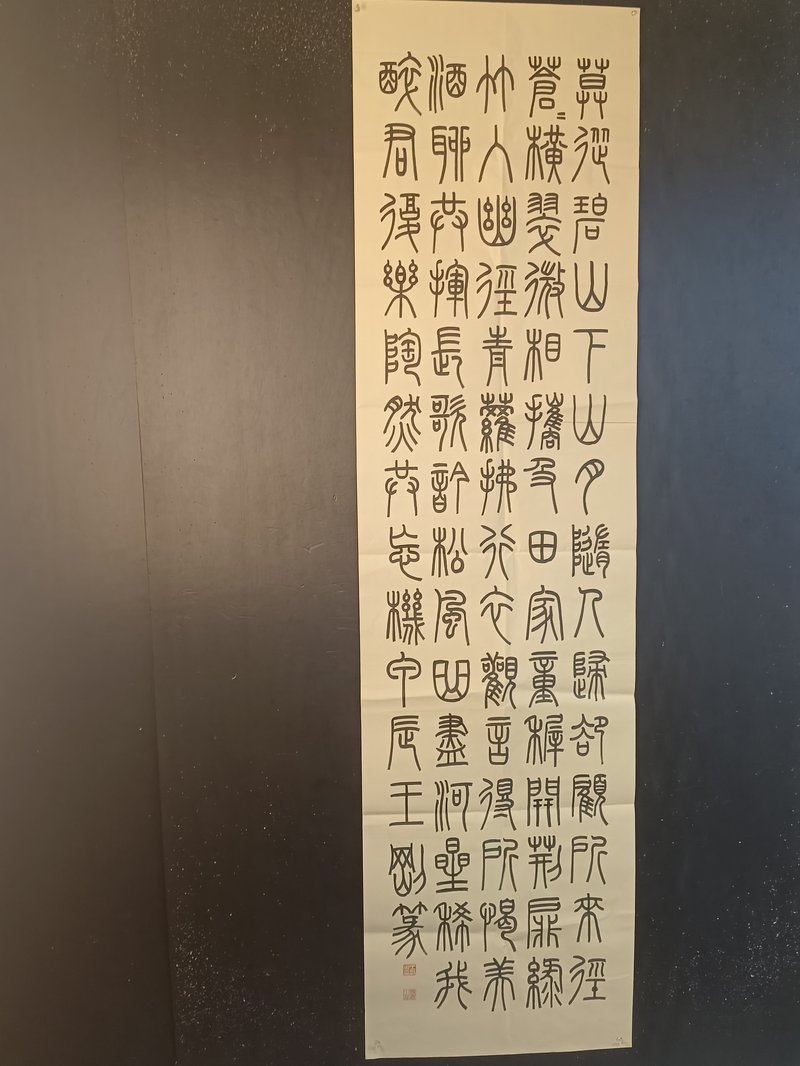 莫從碧山下山月隨人歸卻顧所來徑
蒼〻橫翠微相攜及田家童稺開荊扉綠
竹入幽徑青蘿拂行衣觀言得所愒美
酒聊共揮長歌訡松風曲盡河星稀我
醉君復樂陶然共忘機甲辰王剛篆